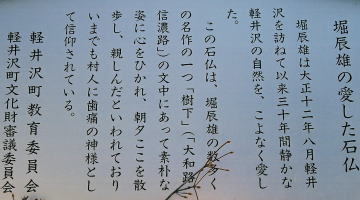 堀辰雄の愛した石仏
堀辰雄は大正十二年八月軽井
沢を訪ねて以来三十年間静かな
軽井沢の自然を、こよなく愛し
た。
この石仏は、堀辰雄の数多く
の名作の一つ「樹下」(「大和路
信濃路」)の文中にあって素朴な
姿に心をひかれ、朝夕ここを散
歩し、親しんだといわれており
いまでも村人に歯痛の神様とし
て信仰されている。
軽井沢町教育委員会
軽井沢町文化財審議委員会